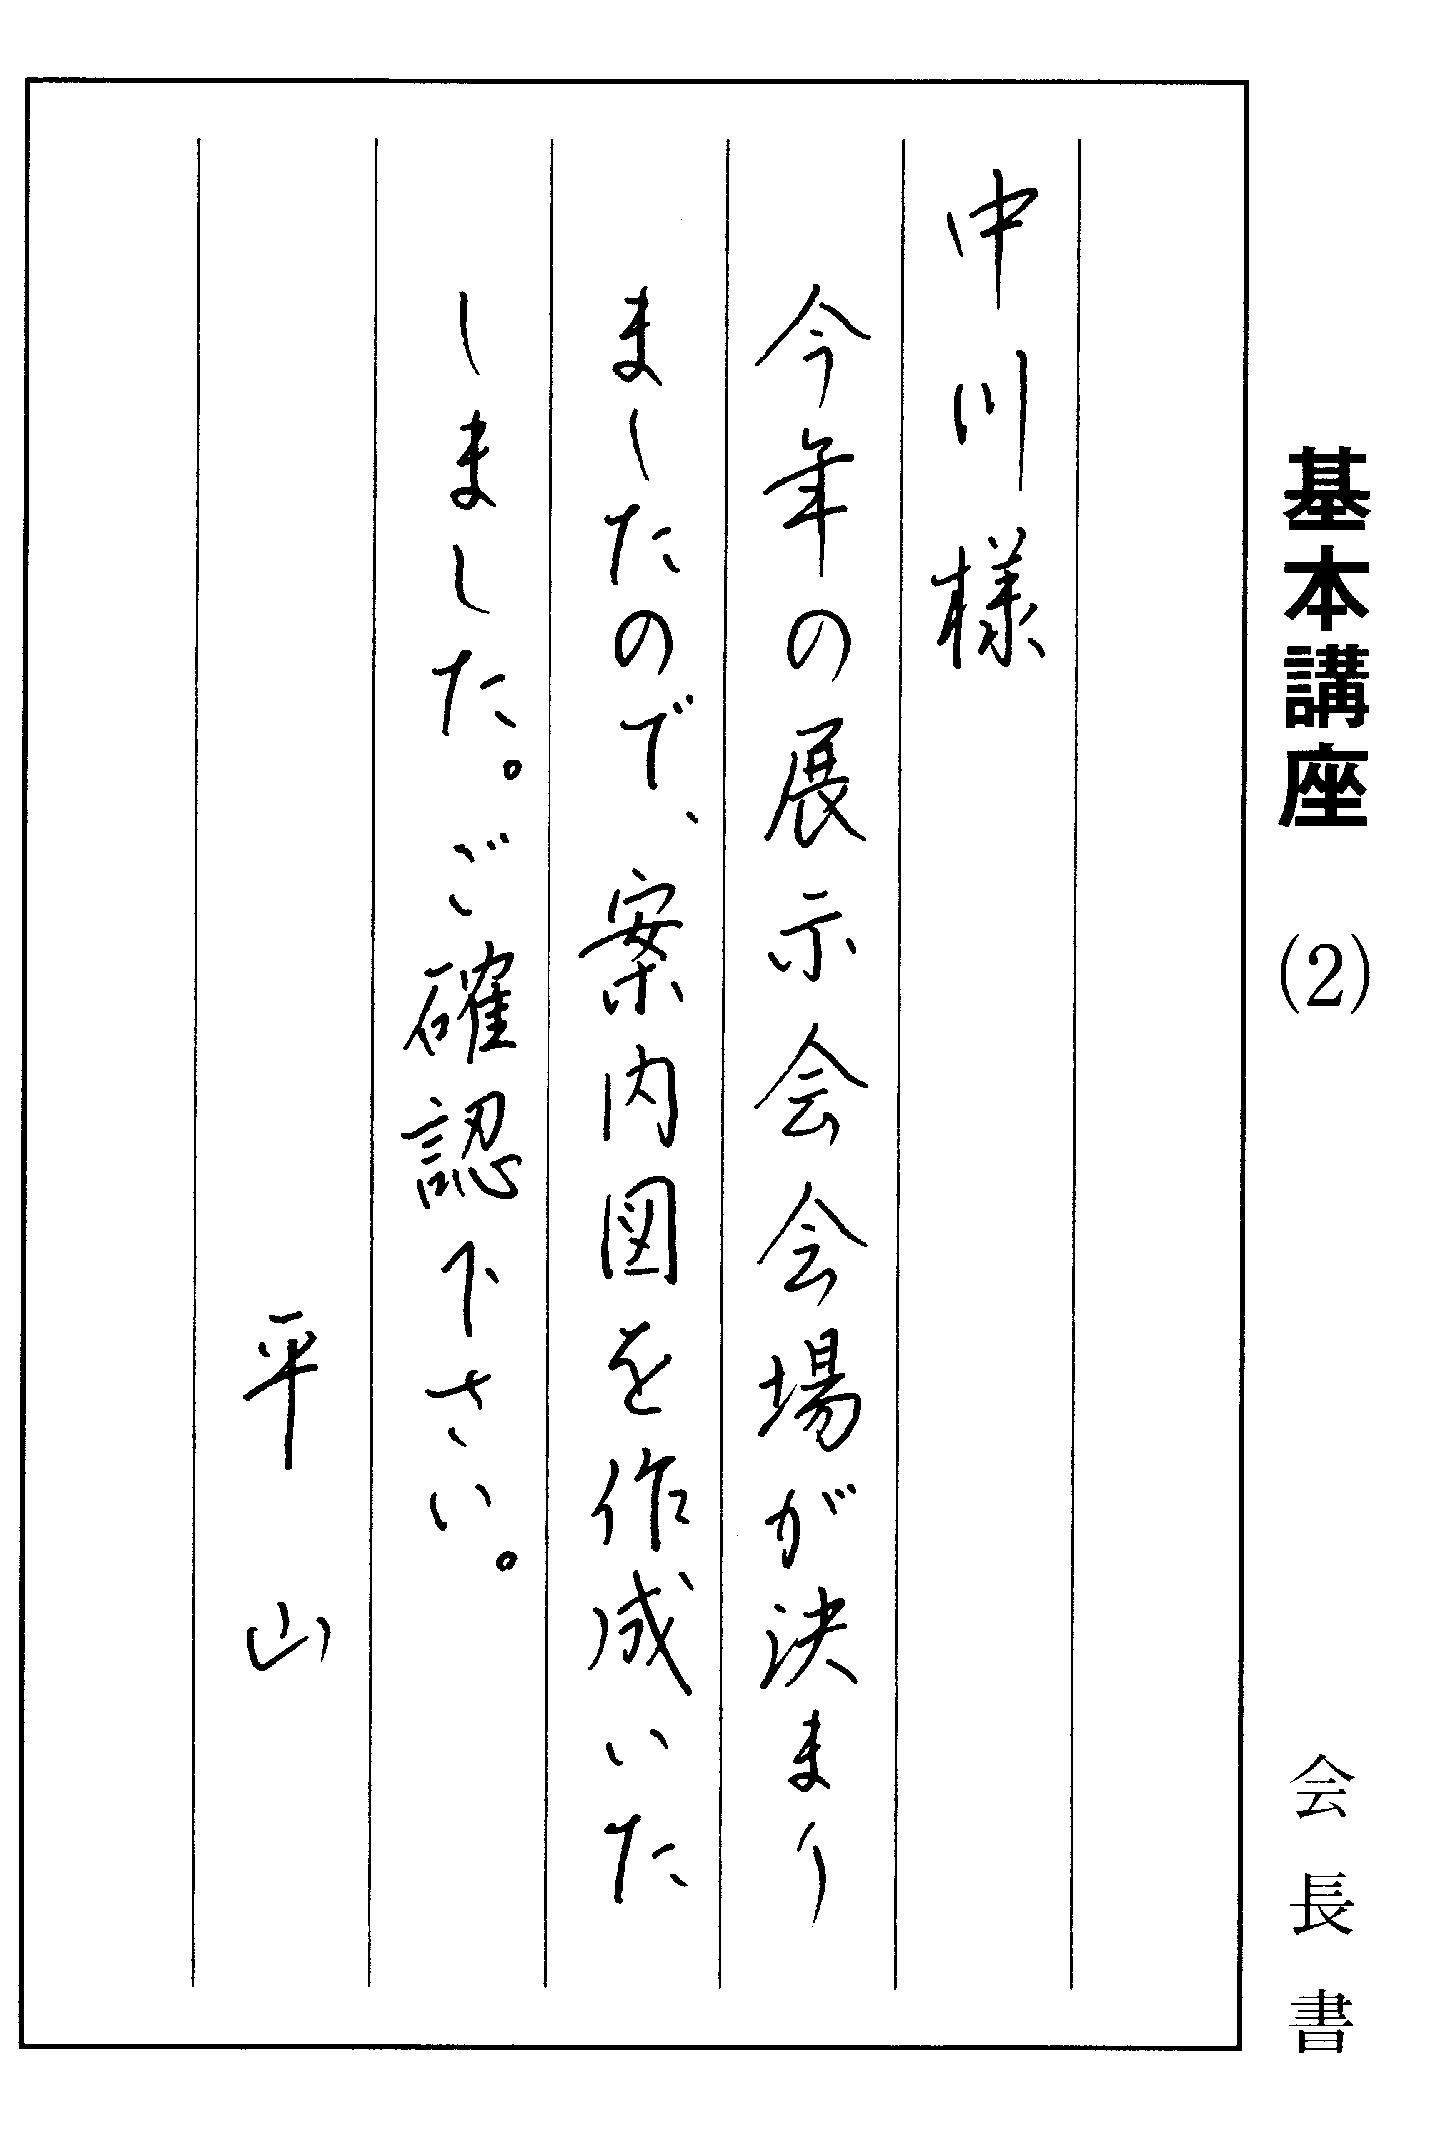 基本講座 (2)
会長書
中川様
今年の展示会会場が決まり
ましたので、案内図を作成いた
しました。ご確認下さい。
平山